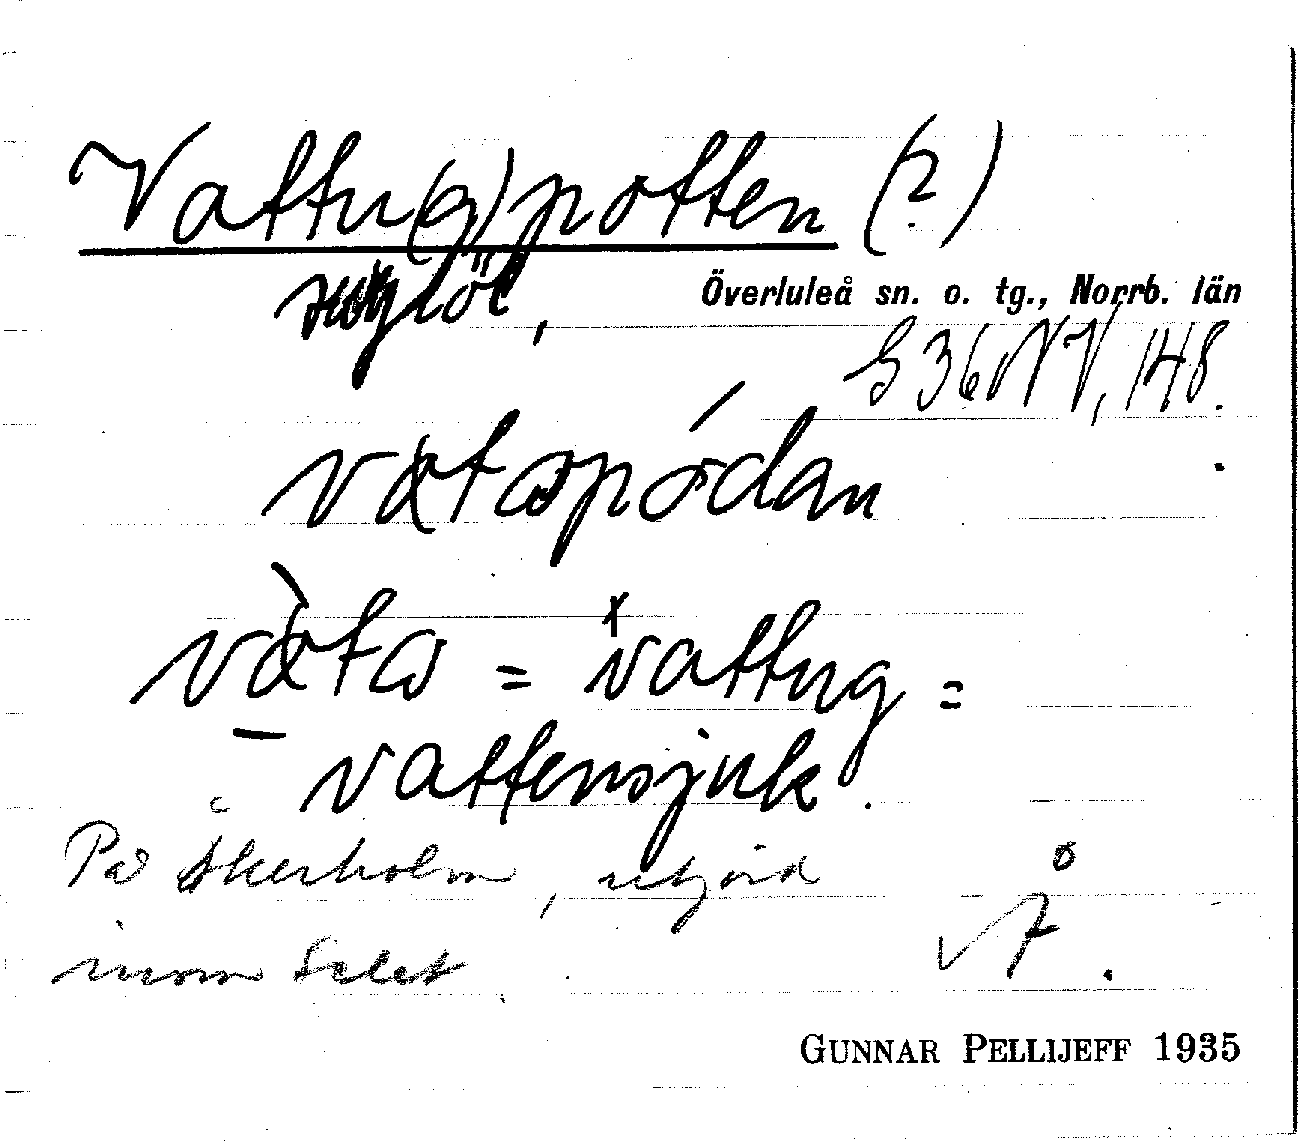 Vattu(g)potten (?)
Överluleå sn. o. tg., Norrb. län
S 36 NV, 148.
vatapódan
vàta = vattug =
vattensjuk.
På Åkerholm, utjord
inom Selet.
Å
GUNNAR PELLIJEFF 1935